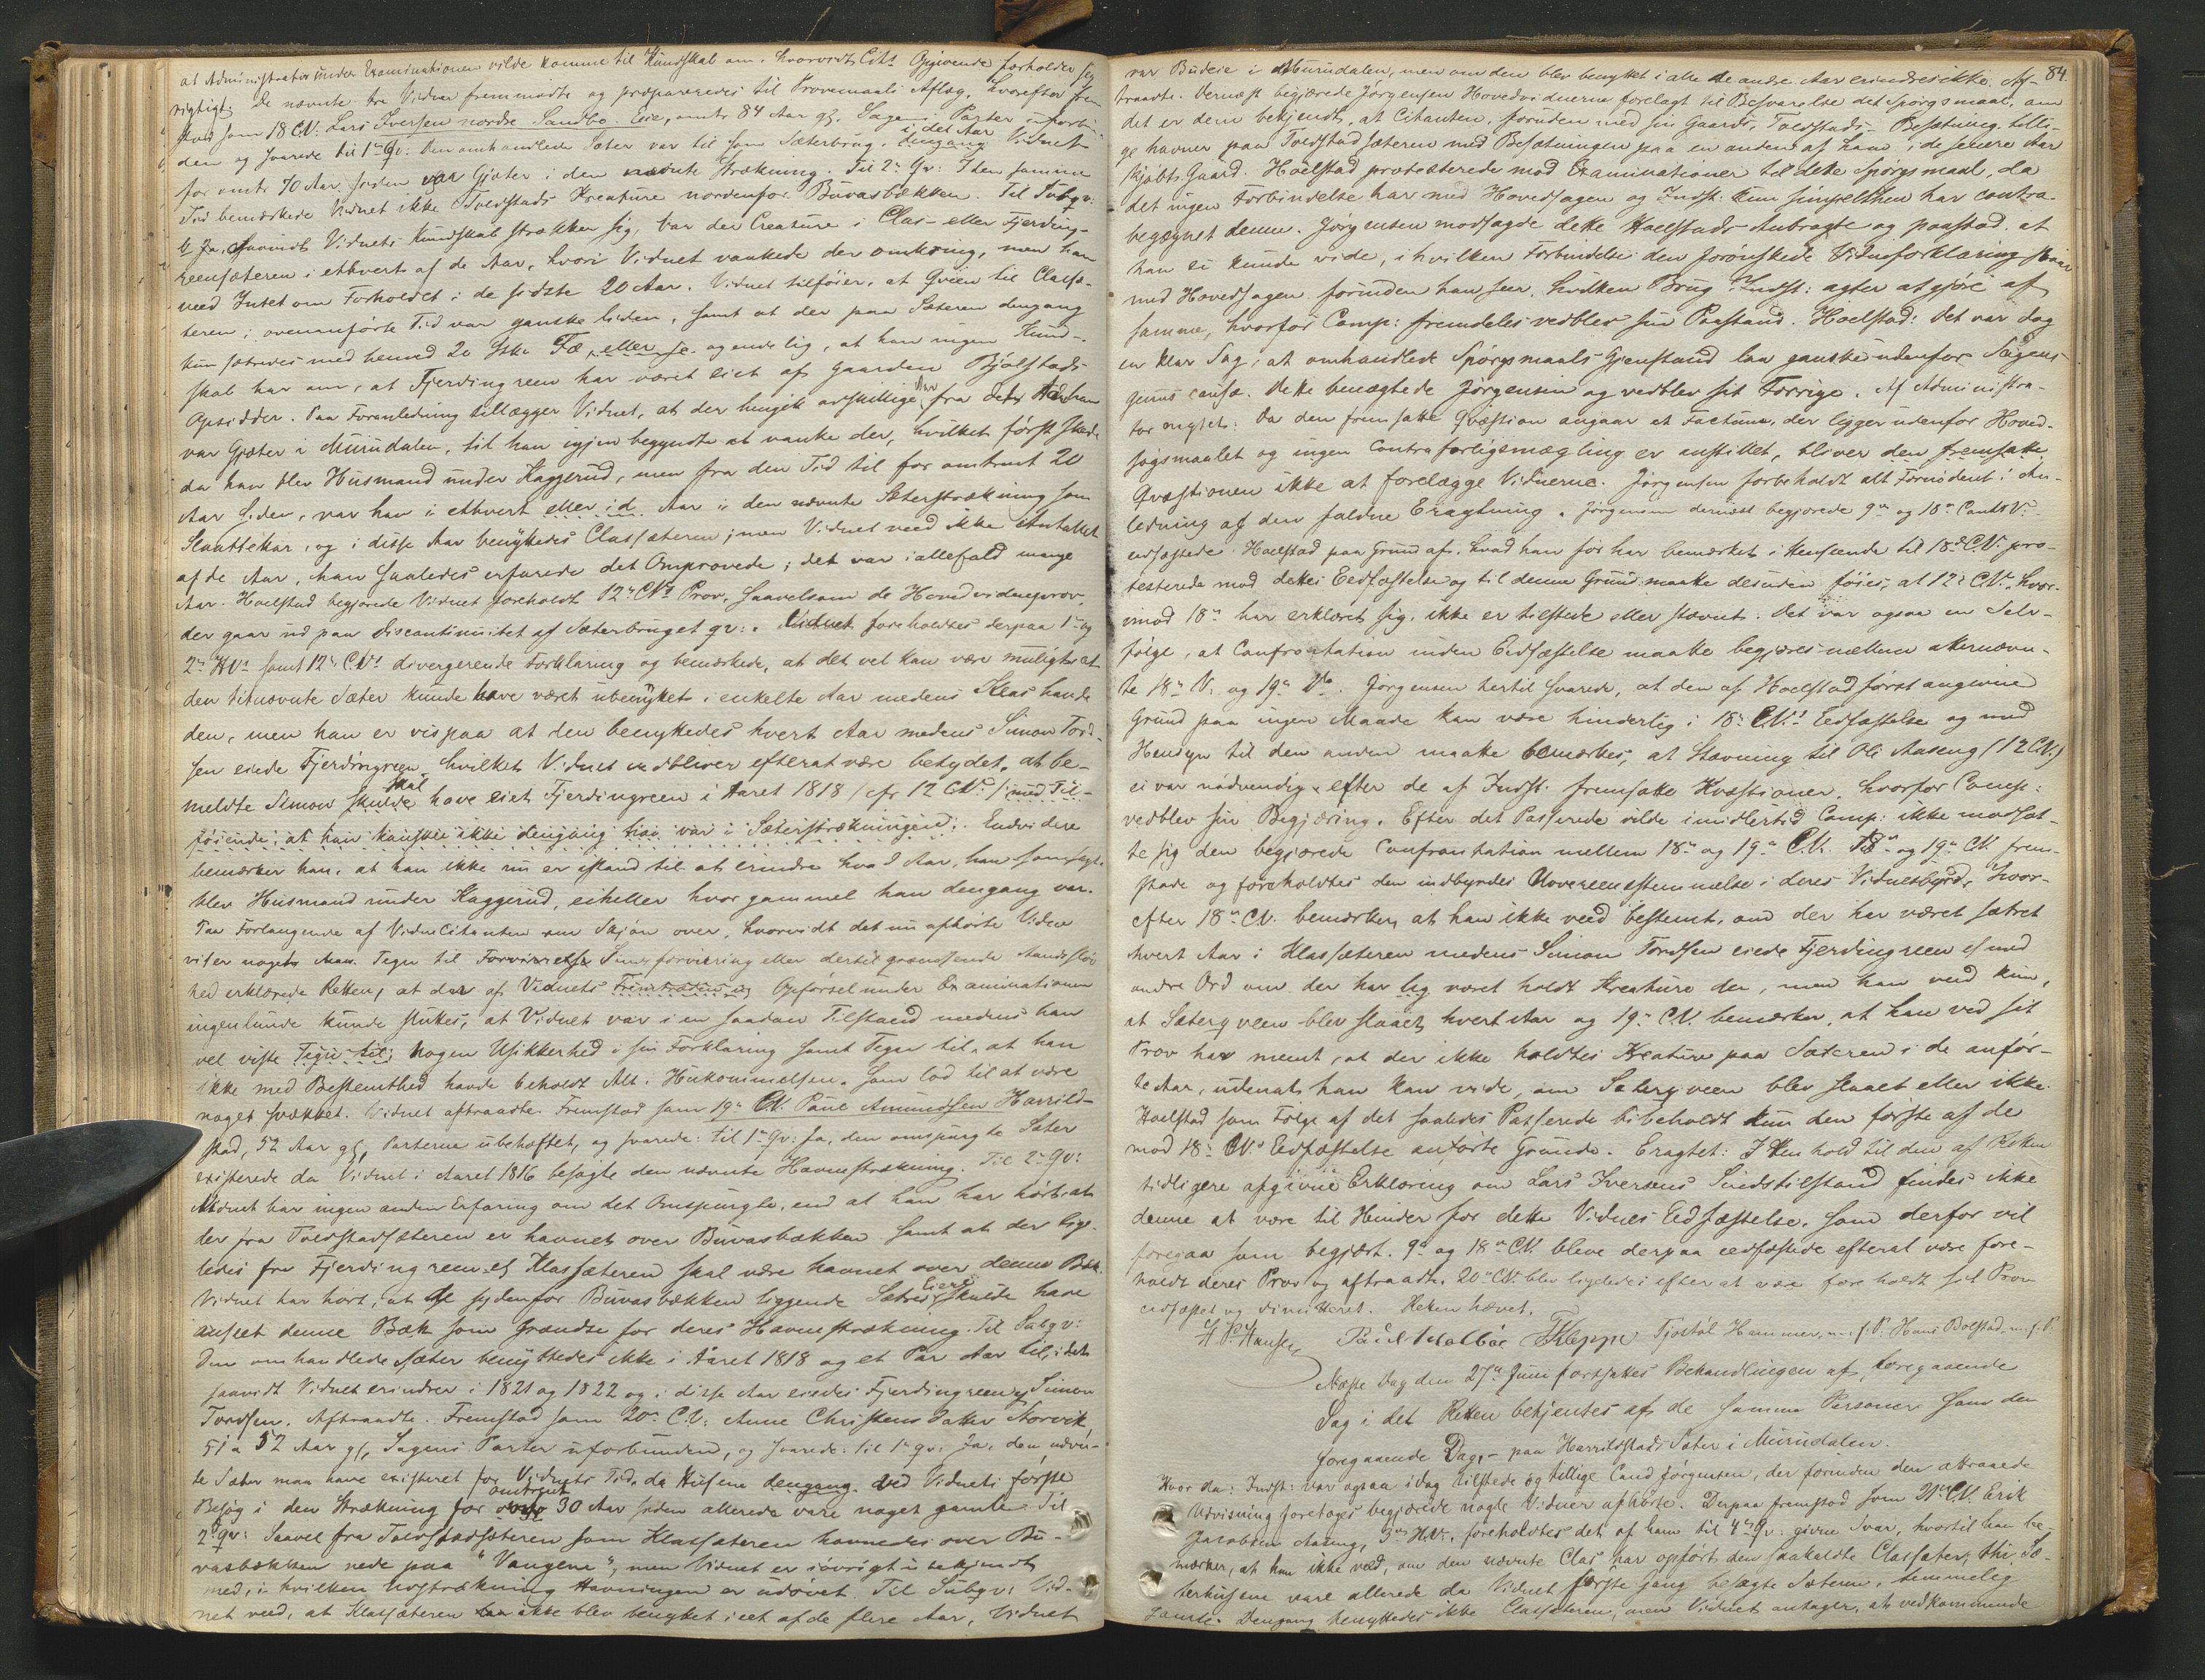 at Administrator under Examinationen vilde komme til Kundskab om, hvorvidt Cits Opgivende forholder sig
rigtigt. De nævnte tre Vidner fremmødte og præpareredes til Provemaals Aflæg, hvorefter frem
stod som 18 C.V: Lars Iversen nordre Sandbo Eie, omtr 84 Aar gl. Sagens Parter uforbun-
den og svarede til 1ste Qv: Den omhandlede Sæter var til som Sæterbrug i det Aar Vidnet
for omtr 70 Aar siden var Gjæter i den nævnte Strækning. Til 2det Qv: I den samme
Tid bemærkede Vidnet ikke Tvedstads Kreature nordenfor Buvasbækken. Til Subqv:
Ja, saavidt Vidnets Kundskab strækker sig, var der Creature i Clas- eller Fjerding-
reensæteren i ethvert af de Aar, hvori Vidnet vankede der omkring, men han
veed Intet om Forholdet i de sidste 20 Aar. Vidnet tilføier, at Qvien til Classæ-
teren i ovenanførte Tid var ganske liden, samt at der paa Sæteren dengang
kun sætredes med henved 20 Stkr Fæ, eller se. og endelig, at han ingen Kund-
skab har om, at Fjerdingreen har været eiet af gaarden Bjølstads
Opsidder. Paa Foranledning tillægger Vidnet, at der hengik adskillige Aar fra den Tid han
var Gjæter i Murudalen, til han igjen begyndte at vanke der, hvilket først skede
da han blev Husmand under Kaggerud, men fra den Tid til for omtrent 20
Aar siden, var han i ethvert eller id. Aar i den nævnte Sæterstrækning som
Slaattekar, og i disse Aar benyttedes Classæteren; men Vidnet veed ikke Antallet
af de Aar, han saaledes erfarede det Omprovede; det var iallefald mange
Aar. Hoelstad begjærede Vidnet foreholdt 12te C.Vs Prov, saavelsom de Hovedvidneprov,
der gaar ud paa Discontinuitet af Sæterbruget qv:. Vidnet foreholdtes derpaa 1ste og
2det H.Vs samt 12te C.Vs divergerende Forklaring og bemærkede, at det vel kan være muligt at
den titnævnte Sæter kunde have været ubenyttet i enkelte Aar medens Klas havde
den, men han er vis paa at den benyttedes hvert Aar medens Simon Tord-
sen eiede Fjerdingreen, hvilket Vidnet vedbliver efterat være betydet, at be-
meldte Simon skal have eiet Fjerdingreen i Aaret 1818 (cfr 12 C.V.) med Til-
føiende, at han kanskee ikke dengang var i Sæterstrækningen. Endvidere
bemærker han, at han ikke nu er istand til at erindre hvad Aar, han som sagt
blev Husmand under Kaggerud, eiheller hvor gammel han dengang var.
Paa Forlangende af VidneCitanten om Skjøn over, hvorvidt det nu afhørte Vidne
viser noget Tegn til Sindsforvirring eller dertil grændsende Aandssløv
hed erklærede Retten, at der af Vidnets Opførsel under Examinationen
ingenlunde kunde sluttes, at Vidnet var i en saadan Tilstand medens han
vel viste nogen Usikkerhed i sin Forklaring samt Tegn til, at han
ikke med Bestemthed havde beholdt Alt i Hukommelsen, som lod til at være
noget svækket. Vidnet aftraadte. Fremstod som 19de C.V. Paul Amundsen Harrild-
stad, 52 Aar gl, Parterne ubeheftet, og svarede: til 1ste Qv: Ja, den omspurgte Sæter
existerede da Vidnet i Aaret 1816 besøgte den nævnte Havnestrækning. Til 2det Qv:
Vidnet har ingen anden Erfaring om det Omspurgte, end at han har hørt, at
der fra Tvedstadsæteren er havnet over Buvasbækken samt at der lige-
ledes fra Fjerdingreen el Klassæteren skal være havnet over denne Bæk.
Vidnet har hørt, at de søndenfor Buvasbækken liggende Sætres Eiere skulde have
anseet denne Bæk som Grændse for deres Havnestrækning. Til Subqv:
Den omhandlede Sæter benyttedes ikke i Aaret 1818 og et Par Aar til, idet
saavidt Vidnet erindrer i 1821 og 1822 og i disse Aar eiedes Fjerdingreen af Simon
Tordsen. Aftraadte. Fremstod som 20de C.V: Anne Christens Datter Storvik
51 a 52 Aar gl, Sagens Parter uforbunden, og svarede: til 1ste Qv: Ja, den nævn-
te Sæter maa have existeret for Vidnets Tid, da Husene dengang ved Vidnets første
Besøg i den Strækning for omtrent 30 Aar siden allerede vare noget gamle. Til
2det Qv: Saavel fra Tvedstadsæteren som Klassæteren havnedes over Bu-
vasbækken nede paa "Vangene", men Vidnet er iøvrigt ubekjendt
med, i hvilken Udstrækning Havningen er udøvet. Til Subqv: Vid-
net veed, at Klassæteren ikke blev benyttet i eet af de flere Aar, Vidnet
84.
var Budeie i Murudalen, men om den blev benyttet i alle de andre Aar erindres ikke. Af-
traadte. Dernæst begjærede Jørgensen Hovedvidnerne forelagt til Besvarelse det Spørgsmaal, om
det er dem bekjendt, at Citanten, foruden med sin Gaards, Tvedstads Besætning tilli-
ge havner paa Tvedstadsæteren med Besætningen paa en anden af ham i de senere Aar
kjøbt Gaard. Hoelstad protesterede mod Examinationer til dette Spørgsmaal, da
det ingen Forbindelse har med Hovedsagen og Indst. kun simpelthen har contra-
begegnet denne. Jørgensen modsagde dette Hoelstads Anbragte og paastod, at
han ei kunde vide, i hvilken Forbindelse den forønskede Vidneforklaring staar
med Hovedsagen forinden han seer, hvilken Brug Indst: agter at gjøre af
samme, hvorfor Comp: fremdeles vedblev sin Paastand. Hoelstad: Det var dog
en klar Sag, at omhandlede Spørgsmaals Gjenstand laa ganske udenfor Sagens
genus causæ. Dette benægtede Jørgensen og vedblev sit Forrige. Af Administra-
tor eragtet: Da den fremsatte Qvæstion angaar et Factum, der ligger udenfor Hoved-
søgsmaalet og ingen Contraforligsmægling er anstillet, bliver den fremsatte
Qvæstionen ikke at forelægge Vidnerne. Jørgensen forbeholdt alt Fornødent i An-
ledning af den faldne Eragtning. Jørgensen dernæst begjærede 9de og 18de ContrV.
edfæstede. Hoelstad paa Grund af, hvad han før har bemærket i Henseende til 18de C.V. pro-
testerede mod dettes Eedfæstelse og til denne Grund maatte desuden føies, at 12te C.V., hvor-
imod 18de har erklæret sig, ikke er tilstede eller stævnt. Det var ogsaa en Selv-
følge, at Confrontation inden Eedfæstelse maatte begjæres mellem oftenævn-
te 18de V. og 19de V. Jørgensen hertil svarede, at den af Hoelstad først angivne
Grund paa ingen Maade kan være hinderlig i 18de C.V.s Eedfæstelse og med
Hensyn til den anden maatte bemærkes, at Stævning til Ole Aaseng (12 C.V.)
ei var nødvendig efter de af Indst. fremsatte Kvæstioner, hvorfor Comp:
vedblev sin Begjæring. Efter det Passerede vilde imidlertid Comp: ikke modsæt-
te sig den begjærede Confrontation mellem 18de og 19de C.V. 18de og 19de C.V. frem-
stode og foreholdtes den indbyrdes Uovereensstemmelse i deres Vidnesbyrd, hvor-
efter 18de C.V. bemærker, at han ikke veed bestemt, om der har været sætret
hvert Aar i Klassæteren medens Simon Tordsen eiede Fjerdingreen el med
andre Ord om der har været holdt Kreature der, men han veed kun,
at Sæterqveen blev slaaet hvert Aar og 19de C.V. bemærker, at han ved sit
Prov har ment, at der ikke holdtes Kreature paa Sæteren i de anfør-
te Aar, udenat han kan vide, om Sæterqveen blev slaaet eller ikke.
Hoelstad som Følge af det saaledes Passerede bibeholdt kun den første af de
mod 18de C.V.s Eedfæstelse anførte Grunde. Eragtet: I Henhold til den af Retten
tidligere afgivne Erklæring om Lars Iversens Sindstilstand findes ikke
denne at være til Hinder for dette Vidnes Eedfæstelse, som derfor vil
foregaa som begjært. 9de og 18de C.V. bleve derpaa eedfæstede efterat være fore-
holdt deres Prov og aftraadte. 20de C.V. blev ligeledes efter at være foreholdt sit Prov
edfæstet og dimitteret. Retten hævet.
H. P. Hansen Paul Kleppe Tjostol Hammer, m. f. P. Hans Bolstad m. f. P.
Næste Dag den 27de Juni fortsattes Behandlingen af foregaaende
Sag i det Retten betjentes af de samme Personer som den
foregaaende Dag, - paa Harrildstads Sæter i Murudalen.
Hvor da: Indst: var ogsaa idag tilstede og tillige Cand Jørgensen, der forinden den attraaede
Udvisning foretages begjærede nogle Vidner afhørte. Derpaa fremstod som 21de C.V. Erik
Jacobsen Aaseng, 3die H.V., foreholdtes det af ham til 4de Qv: givne Svar, hvortil han be-
mærker, at han ikke veed, om den nævnte Clas har opført den saakaldte Classæter, thi Sæ-
terhusene vare allerede da Vidnet første Gang besøgte Sæteren, temmelig
gamle. Dengang benyttedes ikke Classæteren, men Vidnet antager, at vedkommende